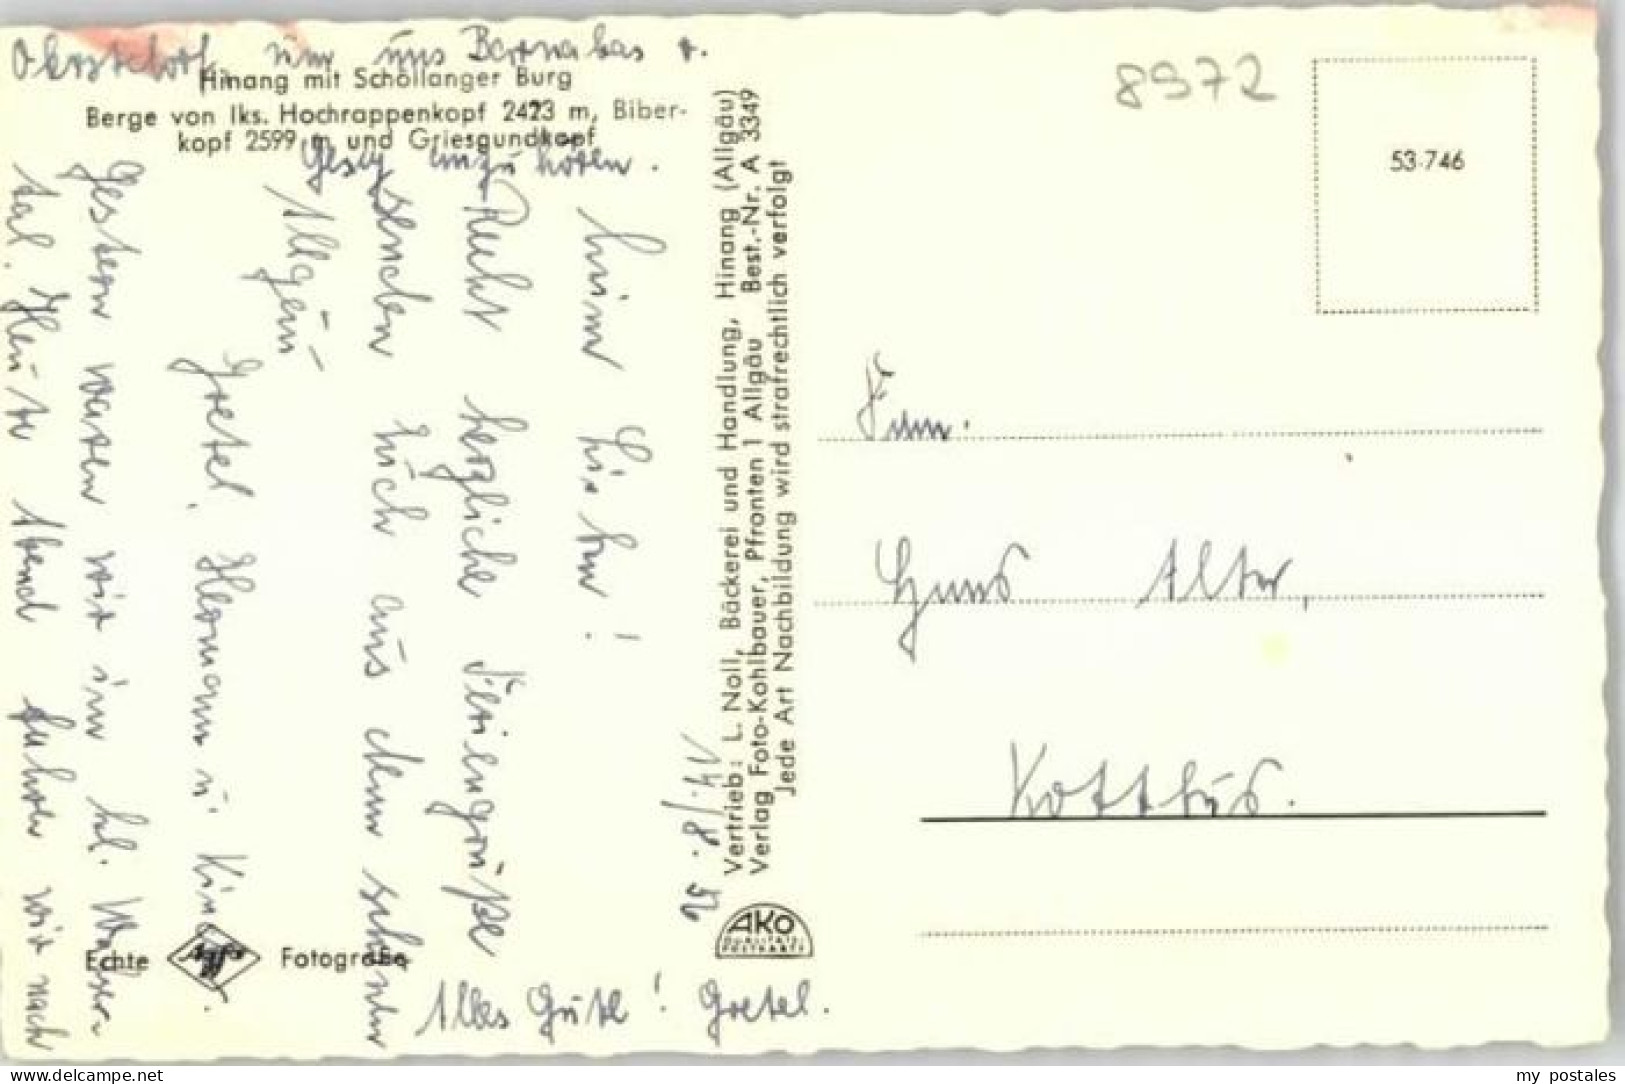 Hinang mit Schöllanger Burg
Berge von lks. Hochrappenkopf 2423 m, Biber-
kopf 2599 m und Griesgundkopf
14./8. 56
Recht herzliche Feriengrüße
senden Euch aus dem schönen
Allgäu
Gretel, Hermann u. Kinder.
Gestern waren wir im kl. Walser-
tal. Heute Abend fuhren wir nach
Oberstdorf, um uns Barnabas v.
Gesy anzuhören.
Alles Gute! Gretel.
Echte Agfa Fotografie
Vertrieb: L. Noll, Bäckerei und Handlung, Hinang (Allgäu)
Verlag Foto-Kohlbauer, Pfronten 1 Allgäu Best.-Nr. A 3349
Jede Art Nachbildung wird strafrechtlich verfolgt
AKO
QUALITÄTS-
POSTKARTE
8972
53-746
Fam.
Hans Alter,
Kottbus.
my postales
www.delcampe.net